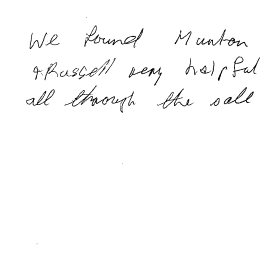 We found Munton
& Russell very helpful
all through the sale